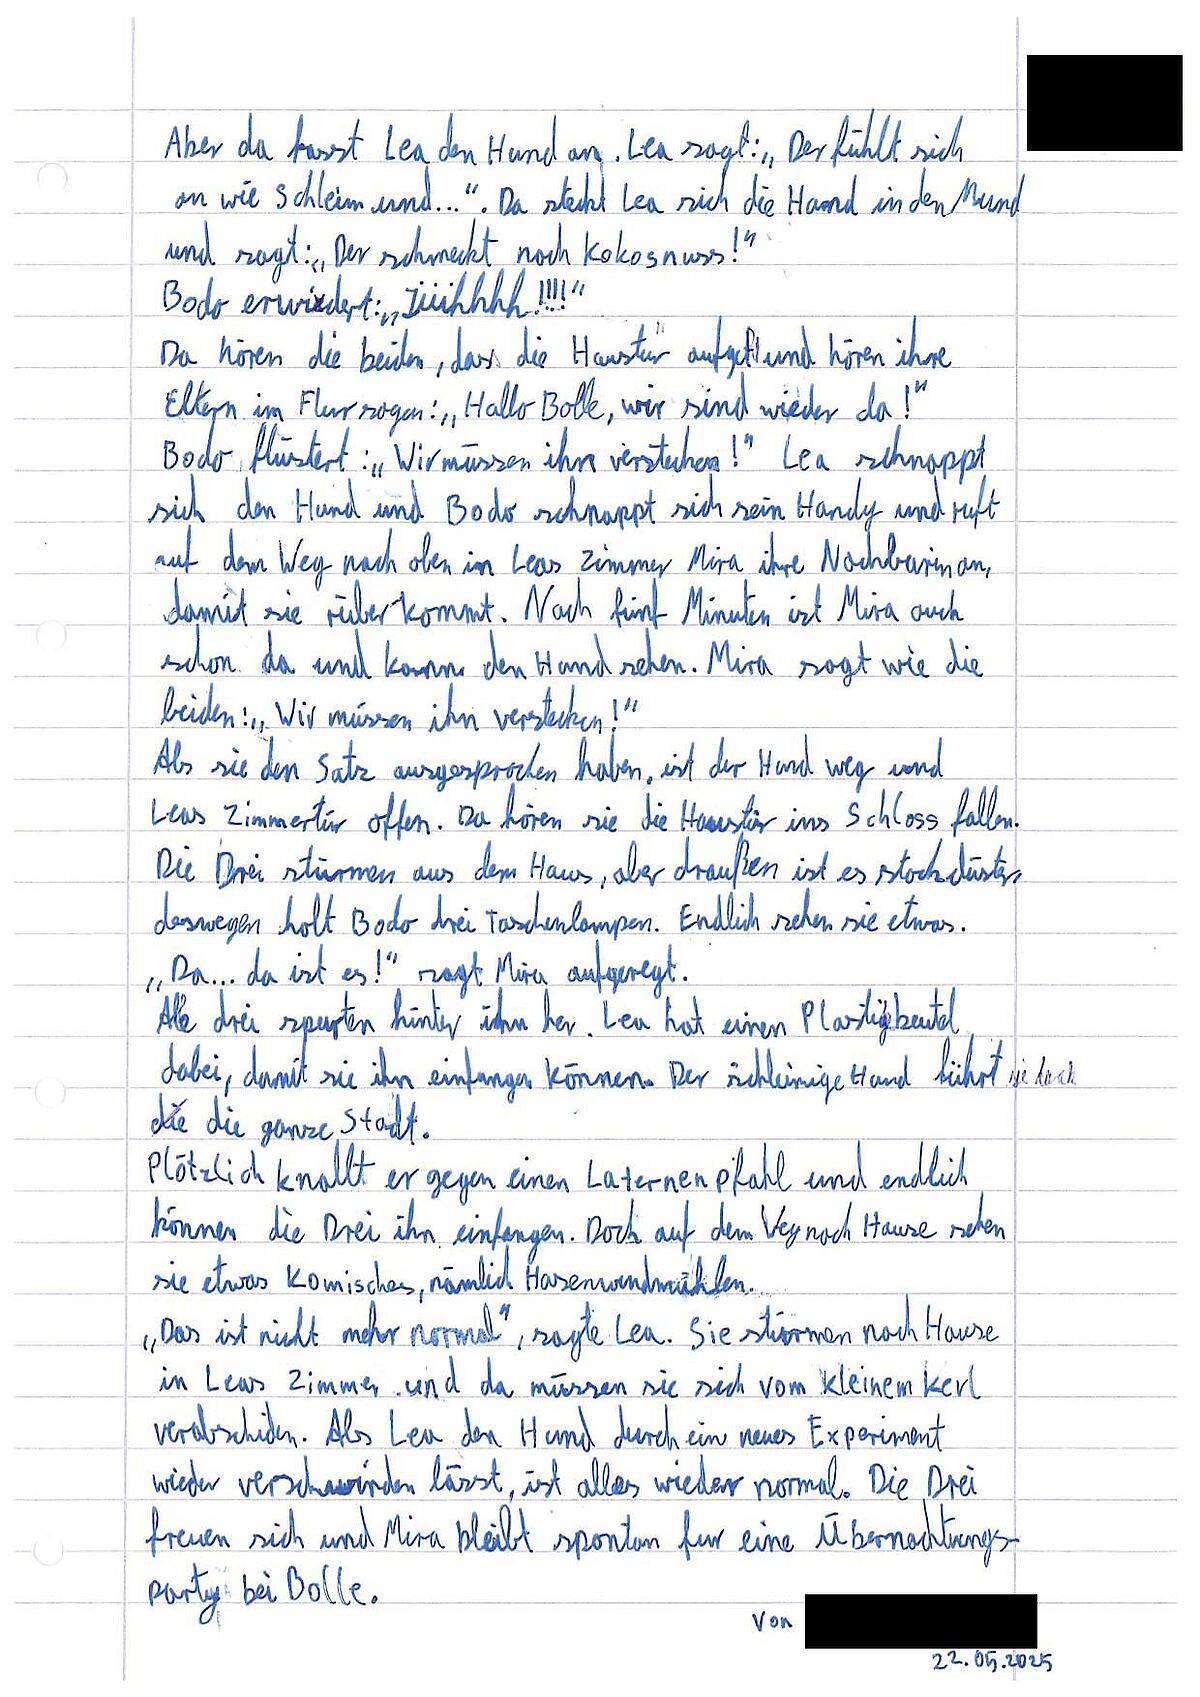 Aber da fasst Lea den Hund an. Lea sagt: „Der fühlt sich
an wie Schleim und...“. Da steckt Lea sich die Hand in den Mund
und sagt: „Der schmeckt nach Kokosnuss!“
Bodo erwidert: „Iiiihhhh!!!!“
Da hören die beiden, das die Haustür aufgeht und hören ihre
Eltern im Flur sagen: „Hallo Bolle, wir sind wieder da!“
Bodo flüstert: „Wir müssen ihn verstecken!“ Lea schnappt
sich den Hund und Bodo schnappt sich sein Handy und ruft
auf dem Weg nach oben in Leas Zimmer Mira ihre Nachbarin an,
damit sie rüber kommt. Nach fünf Minuten ist Mira auch
schon da und kann den Hund sehen. Mira sagt wie die
beiden: „Wir müssen ihn verstecken!“
Als sie den Satz ausgesprochen haben, ist der Hund weg und
Leas Zimmertür offen. Da hören sie die Haustür ins Schloss fallen.
Die Drei stürmen aus dem Haus, aber draußen ist es stockdüster,
deswegen holt Bodo drei Taschenlampen. Endlich sehen sie etwas.
„Da... da ist es!“ sagt Mira aufgeregt.
Alle drei spurten hinter ihn her. Lea hat einen Plastigbeutel
dabei, damit sie ihn einfangen können. Der schleimige Hund führt sie durch
die die ganze Stadt.
Plötzlich knallt er gegen einen Laternenpfahl und endlich
können die Drei ihn einfangen. Doch auf dem Weg nach Hause sehen
sie etwas Komisches, nämlich Hasenwindmühlen.
„Das ist nicht mehr normal“, sagte Lea. Sie stürmen nach Hause
in Leas Zimmer und da müssen sie sich vom kleinem Kerl
verabschiden. Als Lea den Hund durch ein neues Experiment
wieder verschwinden lässt, ist alles wieder normal. Die Drei
freuen sich und Mira bleibt spontan fur eine Übernachtungs-
party bei Bolle.
Von
22.05.2025